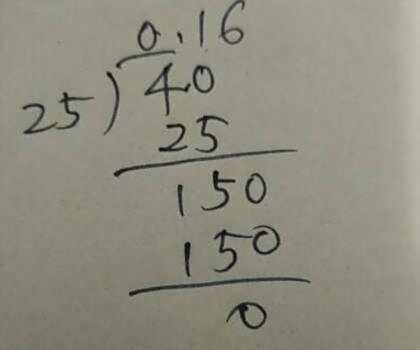 0.16
25)4.0
25
150
150
0